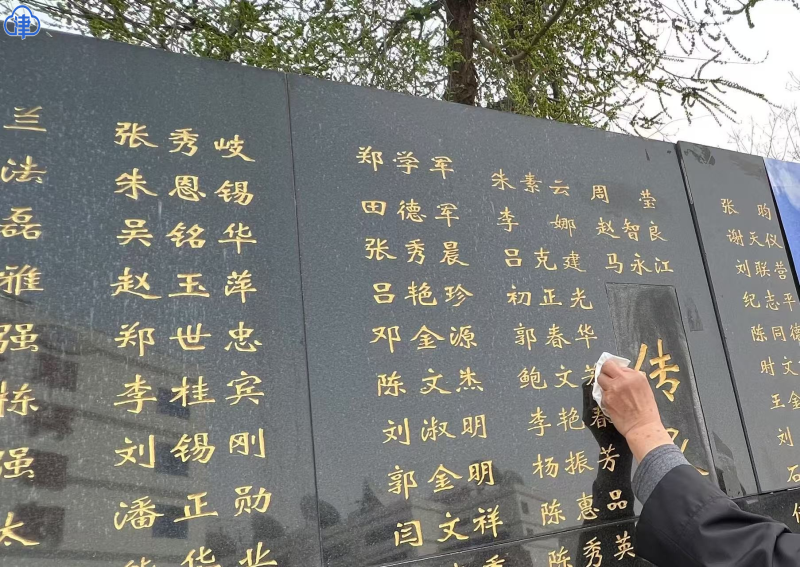 津
兰
法
磊
雅
强
栋
强
太
张秀岐
朱恩锡
吴铭华
赵玉萍
郑世忠
李桂宾
刘锡刚
潘正勋
郑学军
田德军
张秀晨
吕艳珍
邓金源
陈文杰
刘淑明
郭金明
闫文祥
朱素云 周莹
李娜 赵智良
吕克建 马永江
初正光
郭春华
鲍文
李艳春
杨振芳
陈惠品
陈秀英
传
张昀
谢天仪
刘联营
纪志平
陈同德
时文
王金
刘
石